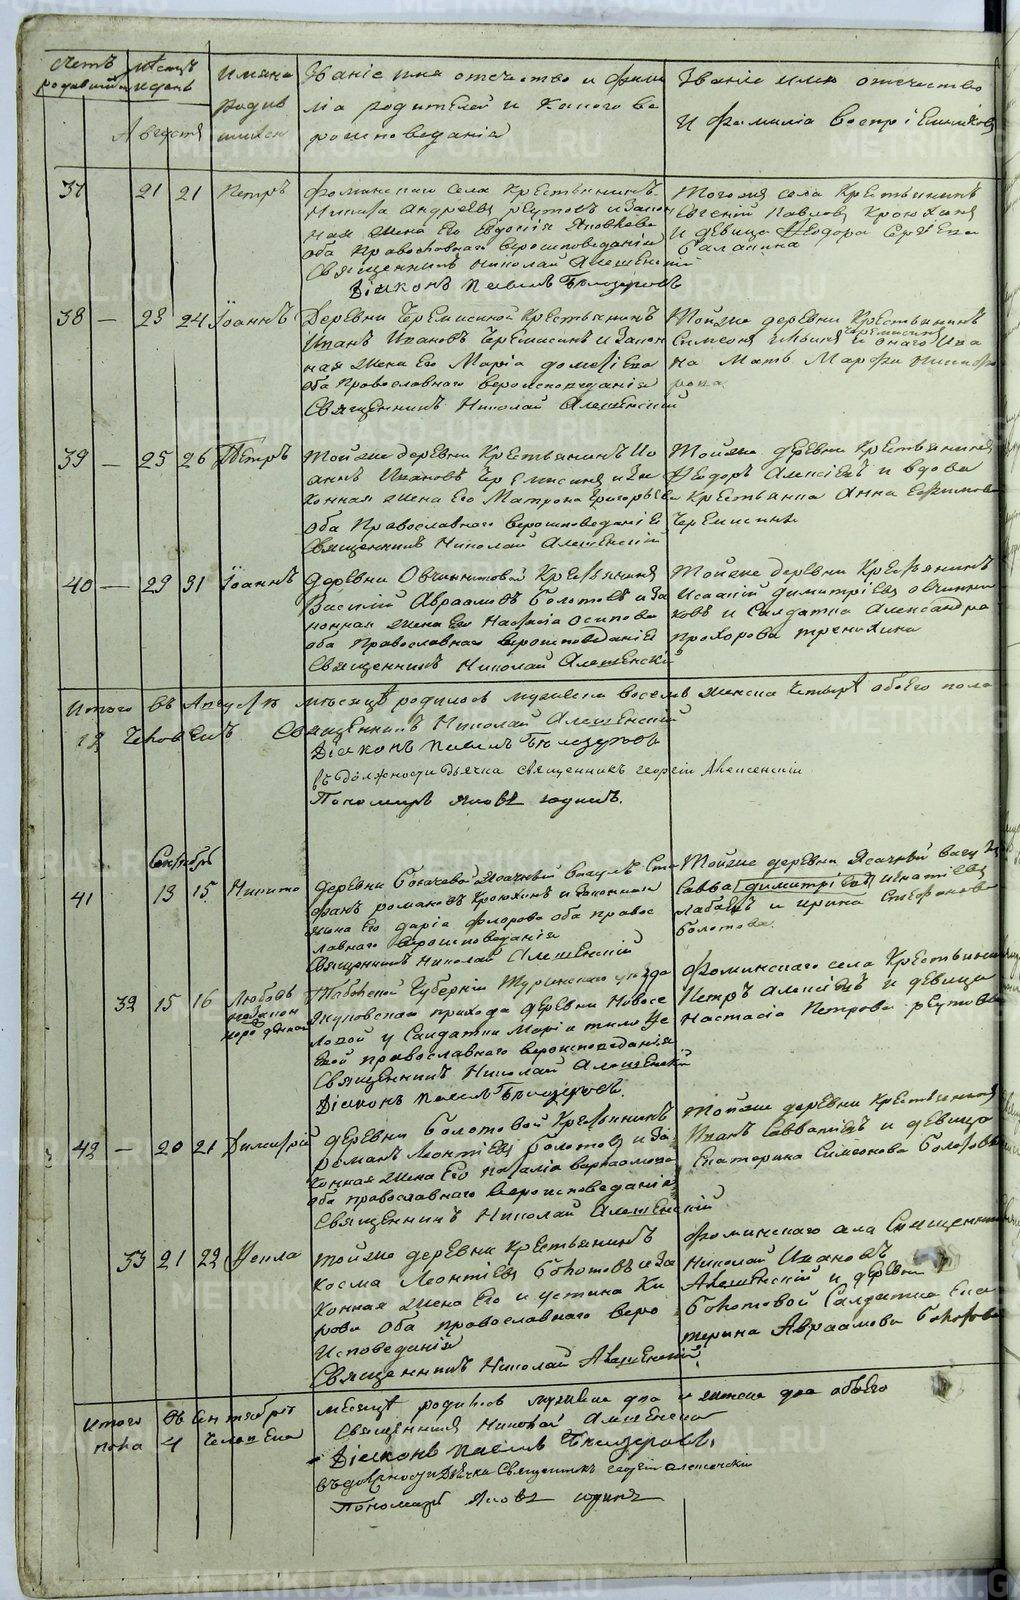 Счетъ родившихся
Месяцъ и день
Августъ
Имяна родившихся
Званіе имя отечество и фамиліа родителей и какого вероисповеданіа
Званіе имя отечество и фамиліа воспріемниковъ
37 21 21 Петръ
Фоминскаго села крестьянинъ
Никита Андреевъ Реутовъ и закон
ная жена его Евдокія Яковлева
оба православнаго вероисповеданія
Священникъ Николай Алешенскій
Діаконъ Павелъ
Тогоже села крестьянинъ
Евгеній Павловъ
и девица Феодора Сергеева
38 — 23 24 Іоаннъ
Деревни Черемисиной крестьянинъ
Иванъ Ивановъ Черемисинъ и закон
ная жена его Маріа
оба православнаго вероисповеданія
Священникъ Николай Алешенскій
Тойже деревни крестьянинъ
Симеонъ Ильинъ Черемисинъ и онаго Ива
на мать Марфа
39 — 25 26 Петръ
Тойже деревни крестьянинъ Ио
аннъ Ивановъ Черемисинъ и за
конная жена его Матрона Григорьева
оба православнаго вероисповеданіе
Священникъ Николай Алешенскій
Тойже деревни крестьянинъ
Феодоръ Алексіевъ и вдова
крестьянка Анна Евфимова
Черемисины
40 — 29 31 Іоаннъ
Деревни Овчинниковой крестьянинъ
Василій Авраамовъ Болотовъ и за
конная жена его Настасіа Осипова
оба православнаго вероисповеданіе
Священникъ Николай Алешенскій
Тойже деревни крестьянинъ
Исаакій Димитріевъ Овчинни
ковъ и салдатка Александра
Прохорова
Итого въ Августе месяце родилось мужеска восемь женска четыре обоего пола
12 человекъ Священникъ Николай Алешенскій
Діаконъ Павелъ
въ должности дьячка священникъ Георгій Алешенскій
Пономарь Яковъ
Сентябрь
41 13 15 Никита
Деревни Ясачный Сте
фанъ Романовъ Крюхинъ и законная
жена его Даріа Федорова оба правос
лавнаго вероисповеданія
Священникъ Николай Алешенскій
Тойже деревни Ясачный
Савва Димитріевъ Игнатіевъ
и Ирина Стефанова
Болотова
32 15 16 Любовь незаконнорожденная
Тобольской губерніи Туринскаго уезда
прихода деревни Новосе
ловой у салдатки Маріи
православнаго вероисповеданія
Священникъ Николай Алешенскій
Діаконъ Павелъ
Фоминскаго села крестьянинъ
Петръ Алексіевъ и девица
Настасіа Петрова Реутовы
42 — 20 21 Димитрій
Деревни Болотовой крестьянинъ
Романъ Леонтіевъ Болотовъ и за
конная жена его Наталіа Варлаамова
оба православнаго вероисповеданія
Священникъ Николай Алешенскій
Тойже деревни крестьянинъ
Иванъ Савватіевъ и девица
Екатерина Симеонова Болотовы
33 21 22 Фекла
Тойже деревни крестьянинъ
Косма Леонтіевъ Болотовъ и за
конная жена его Иустина Ки
рова оба православнаго веро
исповеданія
Священникъ Николай Алешенскій
Фоминскаго села Священникъ
Николай Ивановъ
Алешенскій и деревни
Болотовой салдатка Ека
терина Авраамова Болотова
Итого въ Сентябре месяце родилось мужеска два и женска два обоего
пола 4 человека Священникъ Николай Алешенскій
Діаконъ Павелъ
въ должности дьячка Священникъ Георгій Алешенскій
Пономарь Яковъ
METRIKI.GASO-URAL.RU